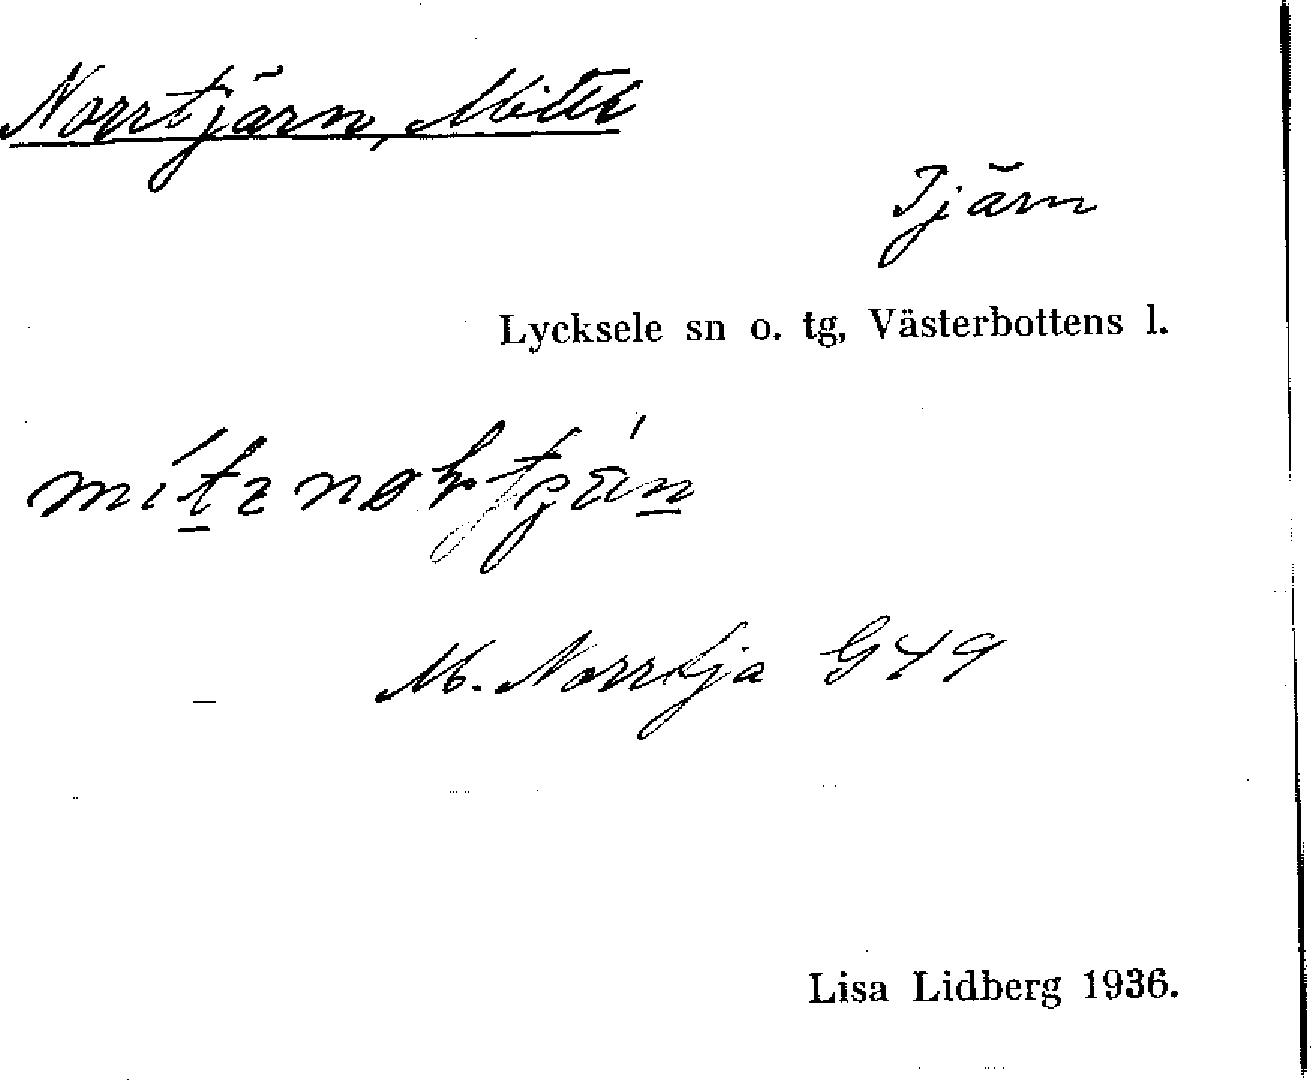 Norrtjärn, Mitte
Tjärn
Lycksele sn o. tg, Västerbottens l.
M. Norrtja G49
Lisa Lidberg 1936.